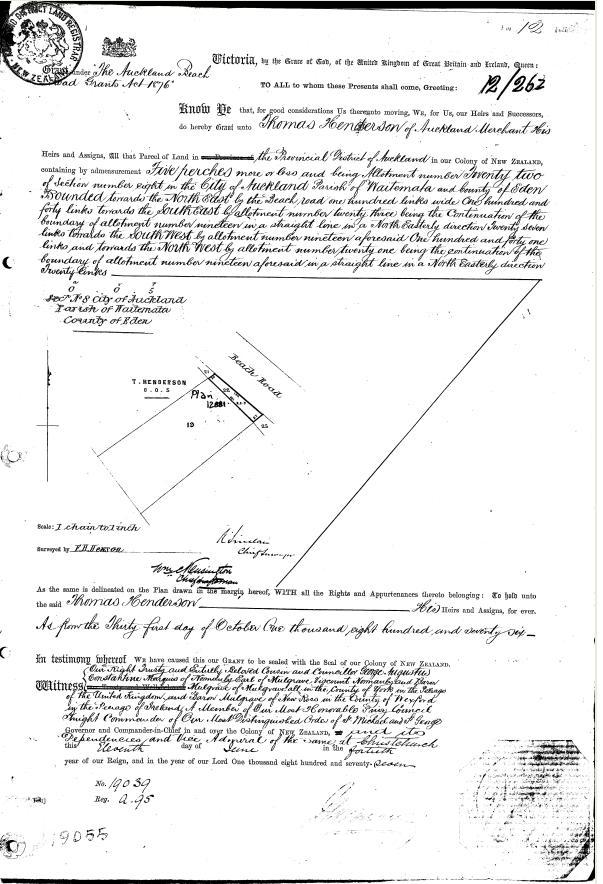 12
DISTRICT LAND REGISTRAR
NEW ZEALAND
Victoria, by the Grace of God, of the United Kingdom of Great Britain and Ireland, Queen:
Grant under "The Auckland Beach
Road Grants Act 1876"
TO ALL to whom these Presents shall come, Greeting:
12/262
Know Ye that, for good considerations Us thereunto moving, WE, for Us, our Heirs and Successors,
do hereby Grant unto Thomas Henderson of Auckland Merchant His
Heirs and Assigns, All that Parcel of Land in the Provincial District of Auckland in our Colony of NEW ZEALAND,
containing by admeasurement Five perches more or less and being Allotment number Twenty two
of Section number eight in the City of Auckland Parish of Waitemata and County of Eden
Bounded towards the North East by the Beach road one hundred links wide One hundred and
forty links towards the South East by allotment number twenty three being the Continuation of the
boundary of allotment number nineteen in a straight line in a North Easterly direction Twenty seven
links towards the South West by allotment number nineteen aforesaid One hundred and forty one
links and towards the North West by allotment number twenty one being the continuation of the
boundary of allotment number nineteen aforesaid in a straight line in a North Easterly direction
Twenty links
0 0 5
Sect N 8 City of Auckland
Parish of Waitemata
County of Eden
Beach Road
T. HENDERSON
0.0.5
Plan
12881
22
19
23
Scale: 1 chain to 1 inch
Chief Surveyor
Surveyed by F.H. Henson
Chief Draftsman
As the same is delineated on the Plan drawn in the margin hereof, WITH all the Rights and Appurtenances thereto belonging: To hold unto
the said Thomas Henderson His Heirs and Assigns, for ever.
As from the Thirty first day of October One thousand, eight hundred, and seventy six
In testimony whereof We have caused this our GRANT to be sealed with the Seal of our Colony of NEW ZEALAND.
Our Right Trusty and Entirely Beloved Cousin and Councillor George Augustus
Constantine Marquis of Normanby Earl of Mulgrave, Viscount Normanby and Baron
Witness Mulgrave of Mulgrave all in the County of York in the Peerage
of the United Kingdom, and Baron Mulgrave of New Ross in the County of Wexford
in the Peerage of Ireland, A Member of Our Most Honorable Privy Council
Knight Commander of Our Most Distinguished Order of St Michael and St George
Governor and Commander-in-Chief in and over the Colony of NEW ZEALAND, and its
Dependencies, and Vice Admiral of the same, at Christchurch
this Eleventh day of June in the fortieth
year of our Reign, and in the year of our Lord One thousand eight hundred and seventy-seven
No. 19039
Reg. A.95
19055